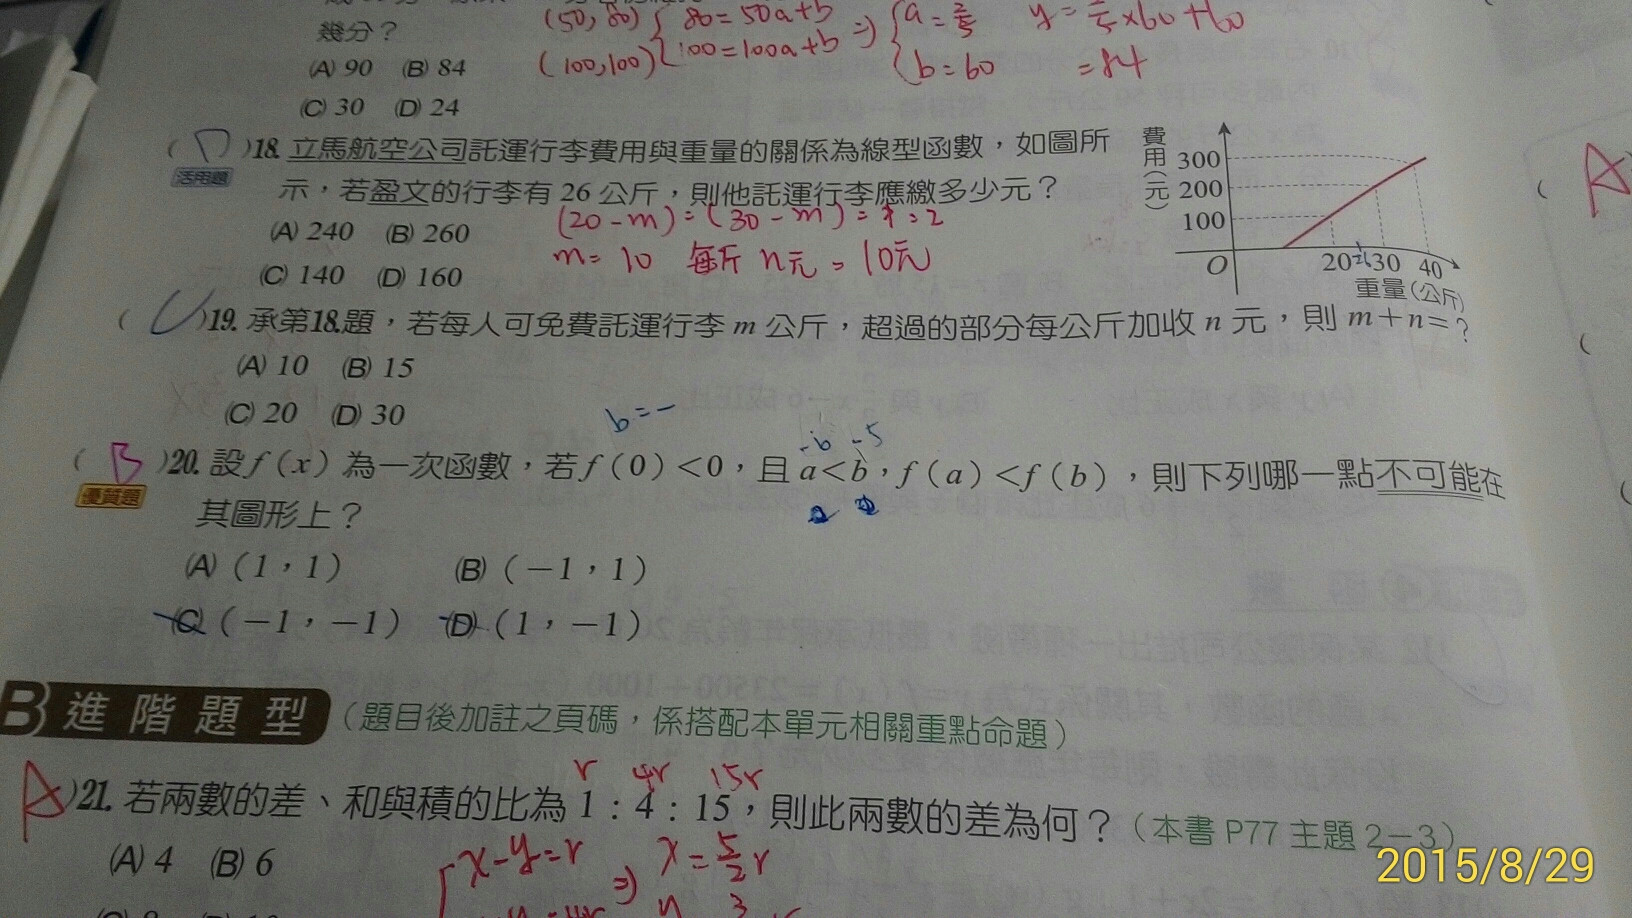 (50, 80) { 80=50a+b ⇒ { a=2/5 y=2/5×60+60
幾分？
(100,100) 100=100a+b b=60 =84
(A) 90 (B) 84
(C) 30 (D) 24
( D )18. 立馬航空公司託運行李費用與重量的關係為線型函數，如圖所
活用題
示，若盈文的行李有 26 公斤，則他託運行李應繳多少元？
(A) 240 (B) 260
(20-m):(30-m)=1:2
(C) 140 (D) 160
m=10 每斤 n元=10元
費用(元)
300
200
100
O
20 26 30 40
重量(公斤)
( C )19. 承第18.題，若每人可免費託運行李 m 公斤，超過的部分每公斤加收 n 元，則 m＋n＝？
(A) 10 (B) 15
(C) 20 (D) 30
b=-
-6 -5
( B )20. 設 f（x）為一次函數，若 f（0）＜0，且 a＜b，f（a）＜f（b），則下列哪一點不可能在
優質題
其圖形上？
(A)（1，1） (B)（－1，1）
(C)（－1，－1） (D)（1，－1）
B 進階題型（題目後加註之頁碼，係搭配本單元相關重點命題）
r 4r 15r
A )21. 若兩數的差、和與積的比為 1：4：15，則此兩數的差為何？（本書 P77 主題 2－3）
(A) 4 (B) 6
x-y=r ⇒ x=5/2r
A
2015/8/29